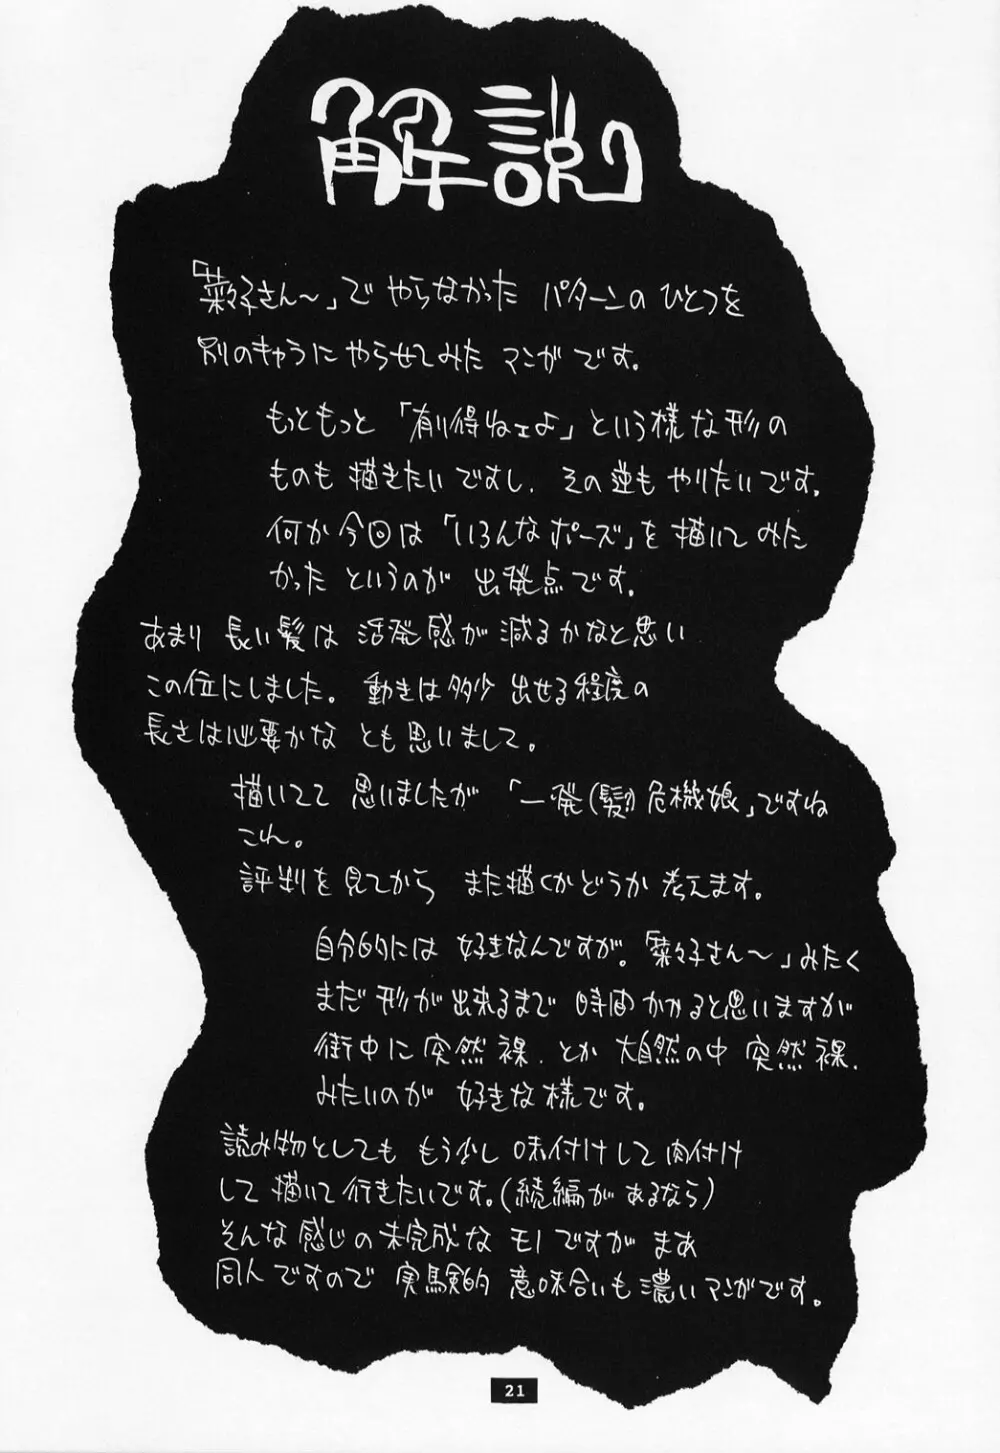 解説
「菜々子さん〜」で やらなかった パターンの ひとつを
別のキャラに やらせてみた マンガです。
もっともっと 「有り得ねェよ」という様な形の
ものも 描きたいですし、その逆も やりたいです。
何か今回は「いろんなポーズ」を 描いて みた
かった というのが 出発点です。
あまり 長い髪は 活発感が 減るかなと思い
この位にしました。 動きは多少 出せる程度の
長さは必要かな とも思いまして。
描いてて 思いましたが 「一発(髪)危機娘」ですね
これ。
評判を見てから また描くかどうか 考えます。
自分的には 好きなんですが。「菜々子さん〜」みたく
まだ 形が出来るまで 時間かかると思いますが
街中に 突然裸、とか 大自然の中 突然裸、
みたいのが 好きな様です。
読み物としても もう少し 味付けして 肉付け
して 描いて行きたいです。(続編が あるなら)
そんな 感じの未完成な モノですが まあ
同人ですので 実験的 意味合いも 濃いマンガです。
21